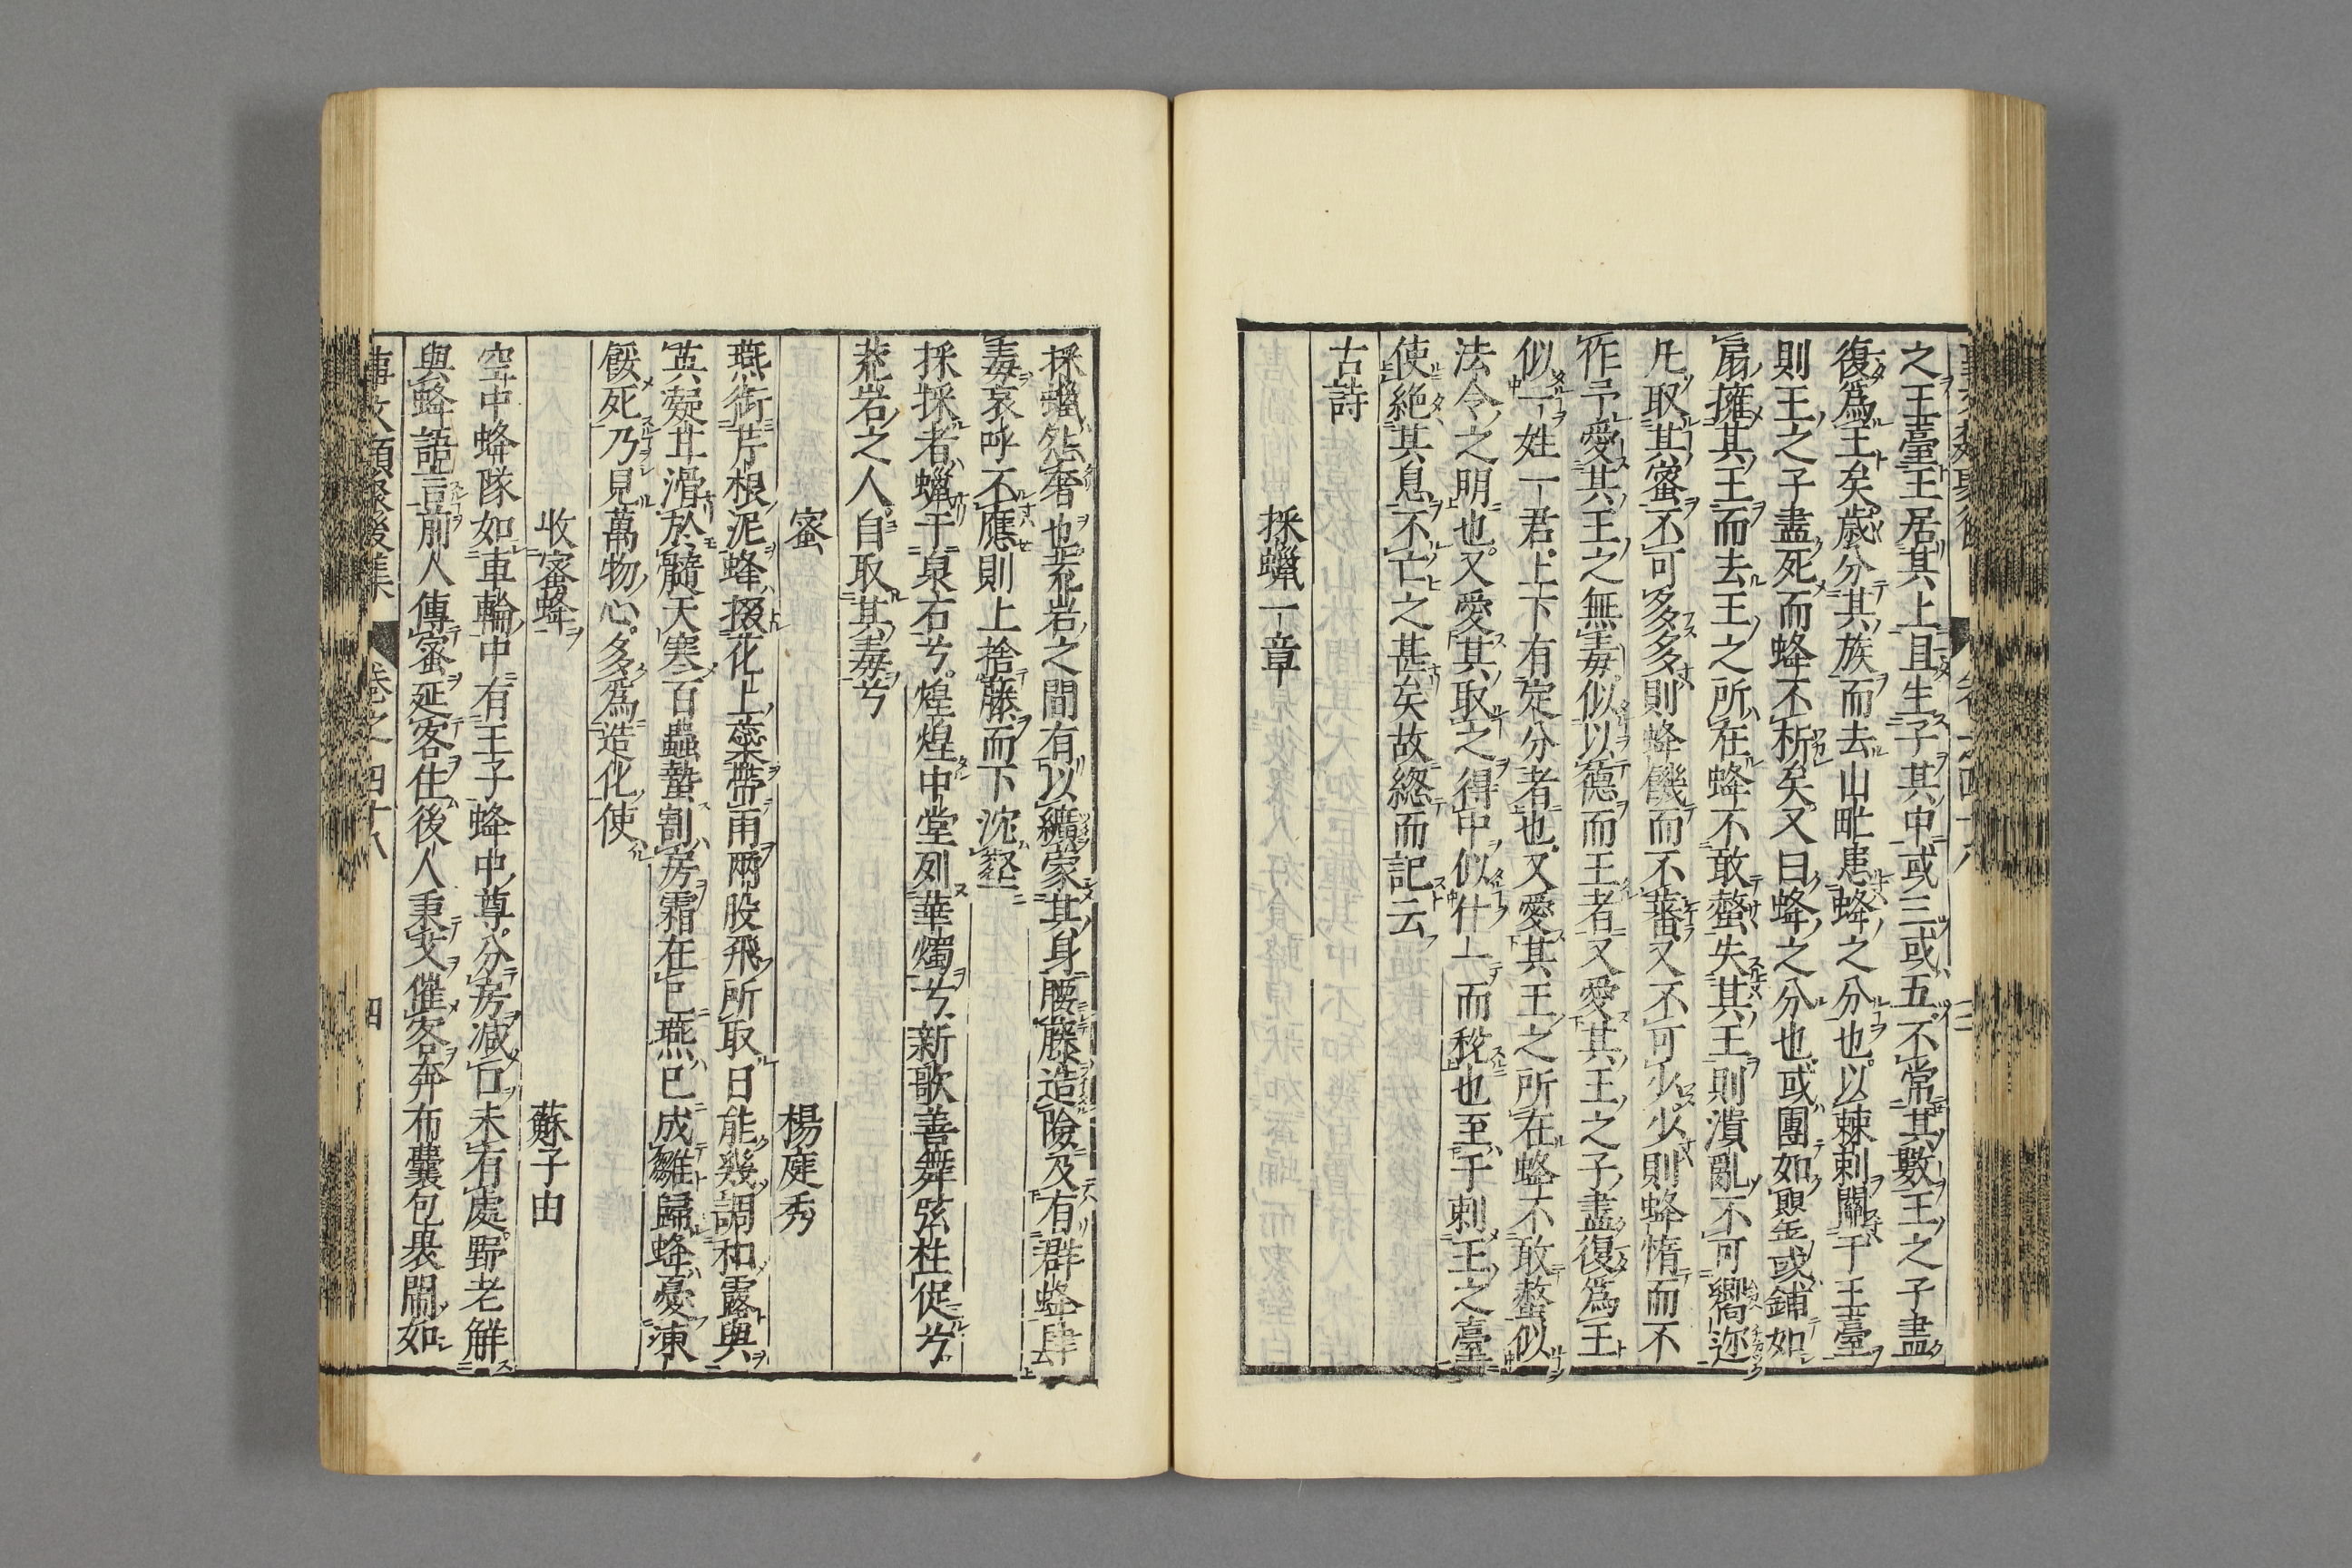 之王臺王居其上且生子其中或三或五不常其數王之子盡
復爲王矣歲分其族而去山甿患蜂之分也以棘刺關于王臺
則王之子盡死而蜂不析矣又曰蜂之分也或團如罌或鋪如
扇擁其王而去王之所在蜂不敢螫失其王則潰亂不可嚮迩
凡取其蜜不可多多則蜂饑而不蕃又不可少少則蜂惰而不
作予愛其王之無毒似以德而王者又愛其王之子盡復爲王
似一姓一君上下有定分者也又愛其王之所在蜂不敢螫似
法令之明也又愛其取之得中似什一而稅也至于刺王之臺
使絶其息不亡之甚矣故緫而記云
古詩
採蠟一章
採蠟怨奢也荒岩之間有以纊蒙其身腰藤造險及有群蜂肆
毒哀呼不應則上捨藤而下沈壑
採採者蠟于泉石兮煌煌中堂列華燭兮新歌善舞弦柱促兮
荒岩之人自取其毒兮
蜜 楊庭秀
燕銜芹根泥蜂掇花上蘂帶雨兩股飛所取日能幾調和露與
英凝甘滑於髓天寒百蟲蟄割房霜在巳燕巳成雛歸蜂憂凍
餒死乃見萬物心多爲造化使
收蜜蜂 蘇子由
空中蜂隊如車輪中有王子蜂中尊分房減口未有處野老解
與蜂語言前人傳蜜延客住後人秉艾催客奔布囊包裹閙如
事文類聚後集 卷之四十八 四